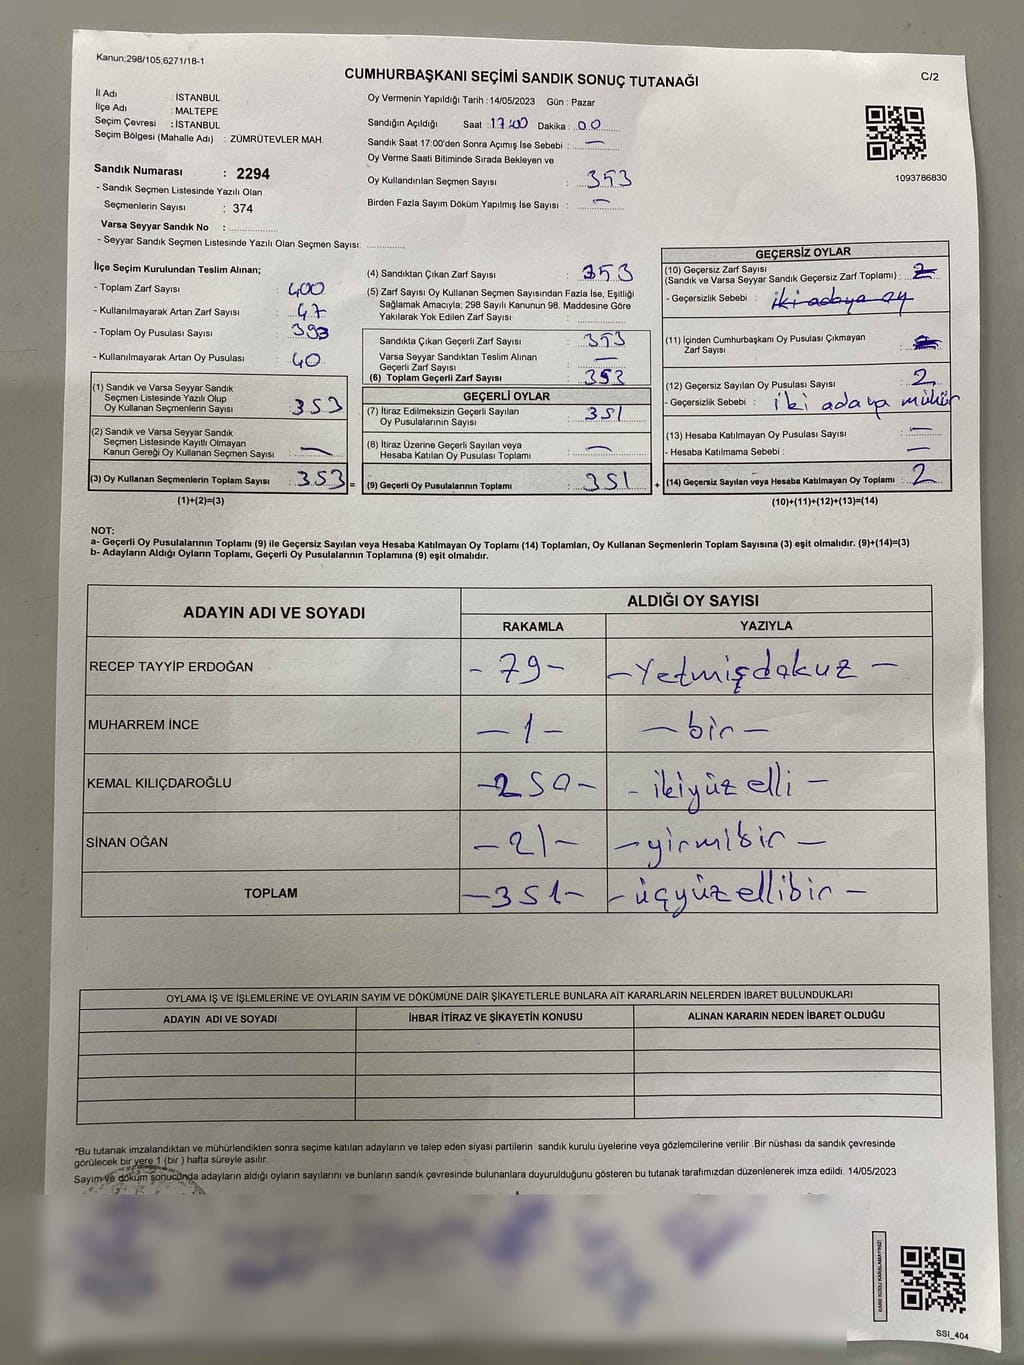 Kanun;298/105,6271/18-1
CUMHURBAŞKANI SEÇİMİ SANDIK SONUÇ TUTANAĞI
C/2
İl Adı : İSTANBUL
İlçe Adı : MALTEPE
Seçim Çevresi : İSTANBUL
Seçim Bölgesi (Mahalle Adı) : ZÜMRÜTEVLER MAH.
Sandık Numarası : 2294
- Sandık Seçmen Listesinde Yazılı Olan
Seçmenlerin Sayısı : 374
Varsa Seyyar Sandık No :
- Seyyar Sandık Seçmen Listesinde Yazılı Olan Seçmen Sayısı:
Oy Vermenin Yapıldığı Tarih : 14/05/2023 Gün : Pazar
Sandığın Açıldığı Saat : 17:00 Dakika : 00
Sandık Saat 17:00'den Sonra Açımış İse Sebebi : —
Oy Verme Saati Bitiminde Sırada Bekleyen ve
Oy Kullandırılan Seçmen Sayısı : 353
Birden Fazla Sayım Döküm Yapılmış İse Sayısı : —
1093786830
İlçe Seçim Kurulundan Teslim Alınan;
- Toplam Zarf Sayısı : 400
- Kullanılmayarak Artan Zarf Sayısı : 47
- Toplam Oy Pusulası Sayısı : 393
- Kullanılmayarak Artan Oy Pusulası : 40
(1) Sandık ve Varsa Seyyar Sandık
Seçmen Listesinde Yazılı Olup
Oy Kullanan Seçmenlerin Sayısı : 353
(2) Sandık ve Varsa Seyyar Sandık
Seçmen Listesinde Kayıtlı Olmayan
Kanun Gereği Oy Kullanan Seçmen Sayısı : —
(3) Oy Kullanan Seçmenlerin Toplam Sayısı : 353 =
(1)+(2)=(3)
(4) Sandıktan Çıkan Zarf Sayısı : 353
(5) Zarf Sayısı Oy Kullanan Seçmen Sayısından Fazla İse, Eşitliği
Sağlamak Amacıyla; 298 Sayılı Kanunun 98. Maddesine Göre
Yakılarak Yok Edilen Zarf Sayısı :
Sandıkta Çıkan Geçerli Zarf Sayısı : 353
Varsa Seyyar Sandıktan Teslim Alınan
Geçerli Zarf Sayısı : —
(6) Toplam Geçerli Zarf Sayısı : 353
GEÇERLİ OYLAR
(7) İtiraz Edilmeksizin Geçerli Sayılan
Oy Pusulalarının Sayısı : 351
(8) İtiraz Üzerine Geçerli Sayılan veya
Hesaba Katılan Oy Pusulası Toplamı : —
(9) Geçerli Oy Pusulalarının Toplamı : 351 +
GEÇERSİZ OYLAR
(10) Geçersiz Zarf Sayısı
(Sandık ve Varsa Seyyar Sandık Geçersiz Zarf Toplamı) : 2
- Geçersizlik Sebebi : iki adaya oy
(11) İçinden Cumhurbaşkanı Oy Pusulası Çıkmayan
Zarf Sayısı :
(12) Geçersiz Sayılan Oy Pusulası Sayısı : 2
- Geçersizlik Sebebi : iki adaya mühür
(13) Hesaba Katılmayan Oy Pusulası Sayısı : —
- Hesaba Katılmama Sebebi : —
(14) Geçersiz Sayılan veya Hesaba Katılmayan Oy Toplamı : 2
(10)+(11)+(12)+(13)=(14)
NOT:
a- Geçerli Oy Pusulalarının Toplamı (9) ile Geçersiz Sayılan veya Hesaba Katılmayan Oy Toplamı (14) Toplamları, Oy Kullanan Seçmenlerin Toplam Sayısına (3) eşit olmalıdır. (9)+(14)=(3)
b- Adayların Aldığı Oyların Toplamı, Geçerli Oy Pusulalarının Toplamına (9) eşit olmalıdır.
ADAYIN ADI VE SOYADI
ALDIĞI OY SAYISI
RAKAMLA YAZIYLA
RECEP TAYYİP ERDOĞAN - 79 - - Yetmişdokuz -
MUHARREM İNCE - 1 - - bir -
KEMAL KILIÇDAROĞLU - 250 - - ikiyüz elli -
SİNAN OĞAN - 21 - - yirmibir -
TOPLAM - 351 - - üçyüz ellibir -
OYLAMA İŞ VE İŞLEMLERİNE VE OYLARIN SAYIM VE DÖKÜMÜNE DAİR ŞİKAYETLERLE BUNLARA AİT KARARLARIN NELERDEN İBARET BULUNDUKLARI
ADAYIN ADI VE SOYADI İHBAR İTİRAZ VE ŞİKAYETİN KONUSU ALINAN KARARIN NEDEN İBARET OLDUĞU
*Bu tutanak imzalandıktan ve mühürlendikten sonra seçime katılan adayların ve talep eden siyasi partilerin sandık kurulu üyelerine veya gözlemcilerine verilir .Bir nüshası da sandık çevresinde
görülecek bir yere 1 (bir ) hafta süreyle asılır.
Sayım ve döküm sonucunda adayların aldığı oyların sayılarını ve bunların sandık çevresinde bulunanlara duyurulduğunu gösteren bu tutanak tarafımızdan düzenlenerek imza edildi. 14/05/2023
KARE KODU KARALAMAYINIZ!
SSI_404